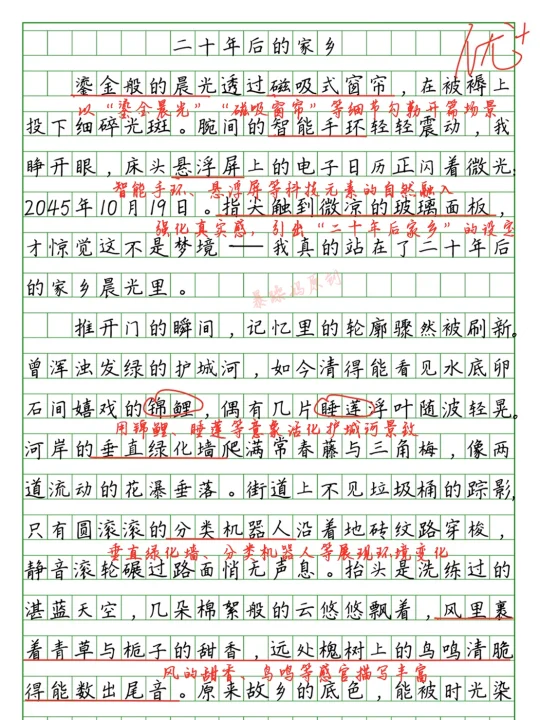 二十年后的家乡
优+
鎏金般的晨光透过磁吸式窗帘，在被褥上
以“鎏金晨光”“磁吸窗帘”等细节勾勒开篇场景
投下细碎光斑。腕间的智能手环轻轻震动，我
睁开眼，床头悬浮屏上的电子日历正闪着微光：
智能手环、悬浮屏等科技元素的自然融入
2045年10月19日。指尖触到微凉的玻璃面板，
强化真实感，引出“二十年后家乡”的设定
才惊觉这不是梦境——我真的站在了二十年后
的家乡晨光里。
推开门的瞬间，记忆里的轮廓骤然被刷新。
曾浑浊发绿的护城河，如今清得能看见水底卵
石间嬉戏的锦鲤，偶有几片睡莲浮叶随波轻晃。
用锦鲤、睡莲等意象活化护城河景致
河岸的垂直绿化墙爬满常春藤与三角梅，像两
道流动的花瀑垂落。街道上不见垃圾桶的踪影，
只有圆滚滚的分类机器人沿着地砖纹路穿梭，
垂直绿化墙、分类机器人等展现环境变化
静音滚轮碾过路面悄无声息。抬头是洗练过的
湛蓝天空，几朵棉絮般的云悠悠飘着，风里裹
着青草与栀子的甜香，远处槐树上的鸟鸣清脆
风的甜香、鸟鸣等感官描写丰富
得能数出尾音。原来故乡的底色，能被时光染